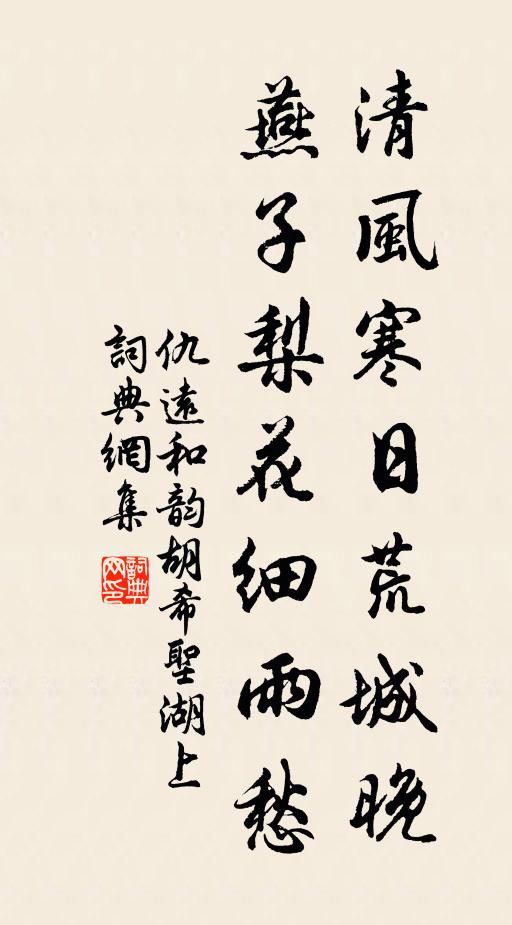 清風寒日荒城晚
燕子梨花細雨愁
仇遠和韵胡希聖湖上
詞典網集
詞典網印